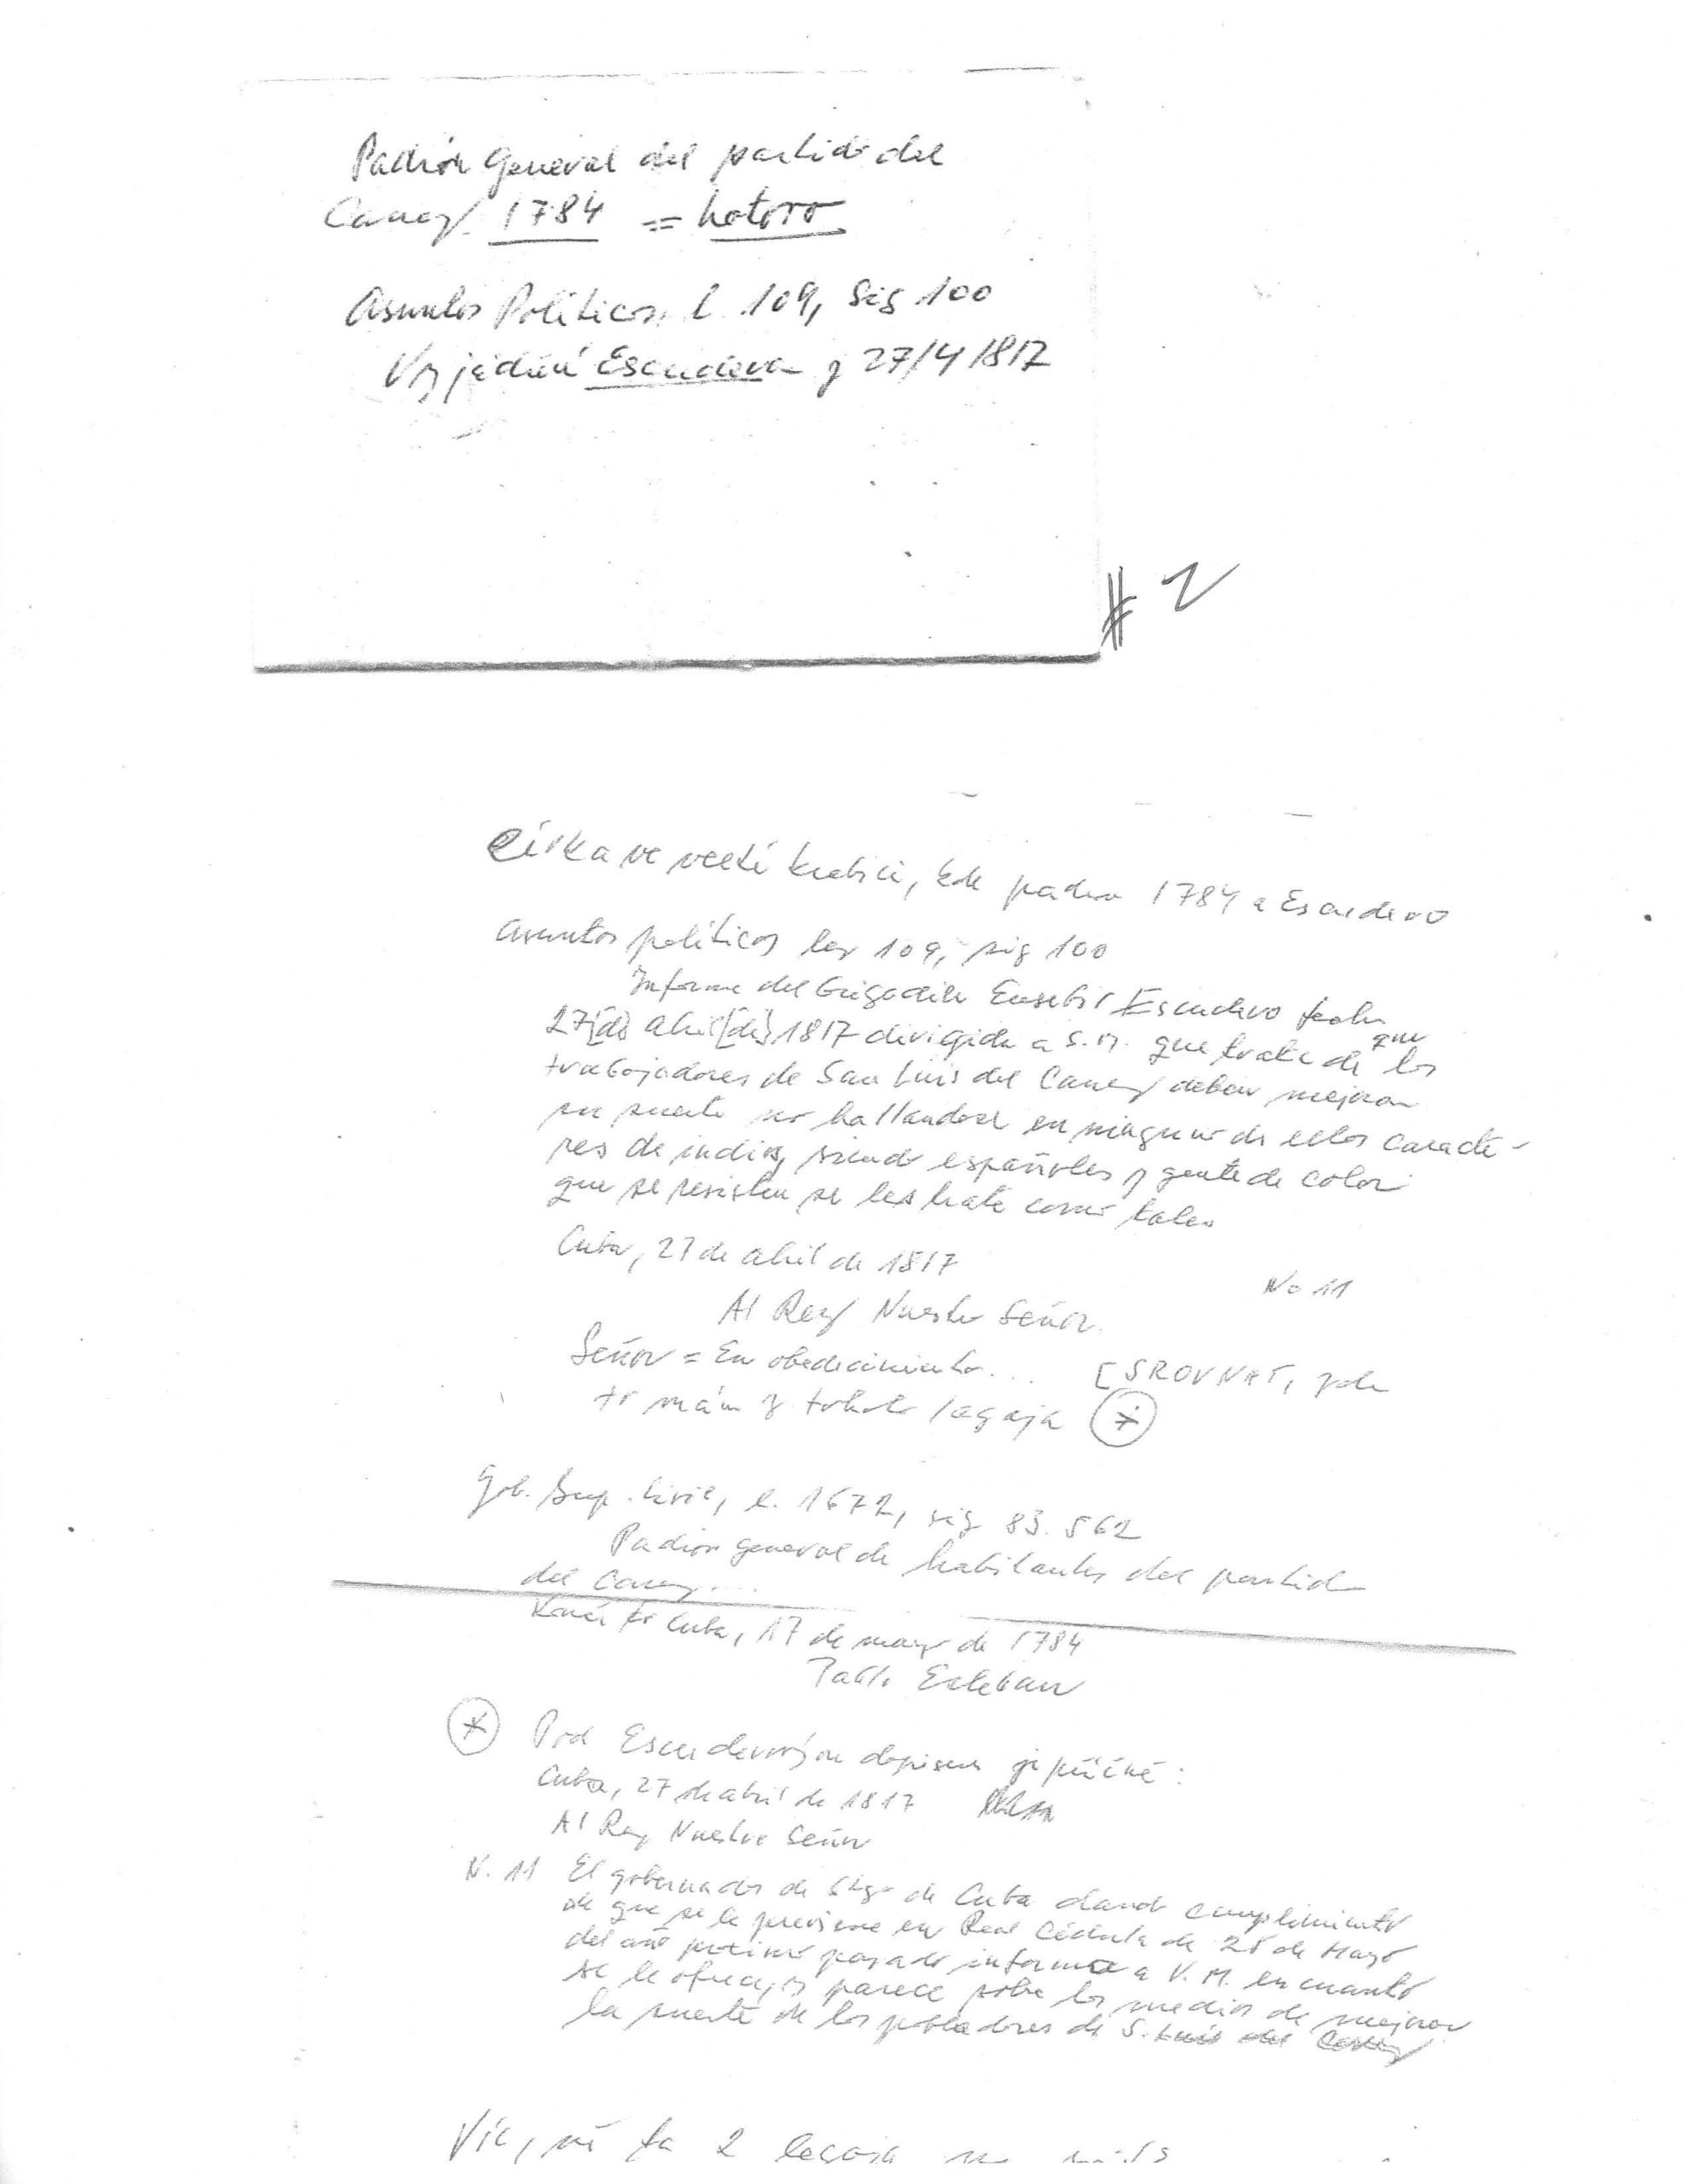 Padrón General del partido del
Caney 1784 = hotovo
Asuntos Políticos, l. 109, Sig 100
Vyjádření Escudera z 27/4 1817
# 2
ve velké krabici, kde padrón 1784 a Escudero
Asuntos políticos leg 109, sig 100
Informe del brigadier Eusebio Escudero fecha
27[de] abril[de] 1817 dirigida a S.M. que trata de que los
trabajadores de San Luis del Caney deben mejorar
su suerte no hallandose en ninguno de ellos caracte-
res de indios, siendo españoles y gente de color
que se resisten se les trate como tales
Cuba, 27 de abril de 1817
No 11
Al Rey Nuestro Señor.
Señor = En obedecimiento... [SROVNAT, zda
to mám z tohoto legaja *
Gob. Sup. Civil, l. 1672, sig 83.562
Padrón general de habitantes del partido
del Caney...
Končí to Cuba, 17 de mayo de 1784
Pablo Esteban
* Pod Escuderovým dopisem je příčně:
Cuba, 27 de abril de 1817
Al Rey Nuestro Señor
N. 11 El gobernador de Stgo de Cuba dando cumplimiento
de que se le previene en Real Cédula de 25 de Mayo
del año próximo pasado informa a V. M. en cuanto
se le ofrece y parece sobre los medios de mejorar
la suerte de los pobladores de S. Luis del Caney
Víc, ta 2 legaja